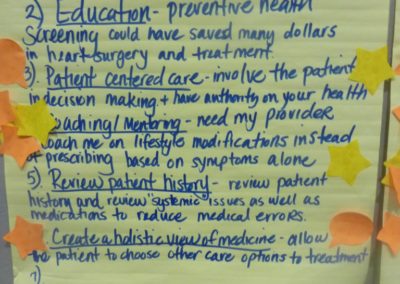 2) Education - preventive health
Screening could have saved many dollars
in heart surgery and treatment.
3) Patient centered care - involve the patient
in decision making + have authority on your health
Coaching/Mentoring - need my provider
coach me on lifestyle modifications instead
of prescribing based on symptoms alone
5) Review patient history - review patient
history and review "systemic" issues as well as
medications to reduce medical errors.
Create a holistic view of medicine - allow
the patient to choose other care options to treatment
7)